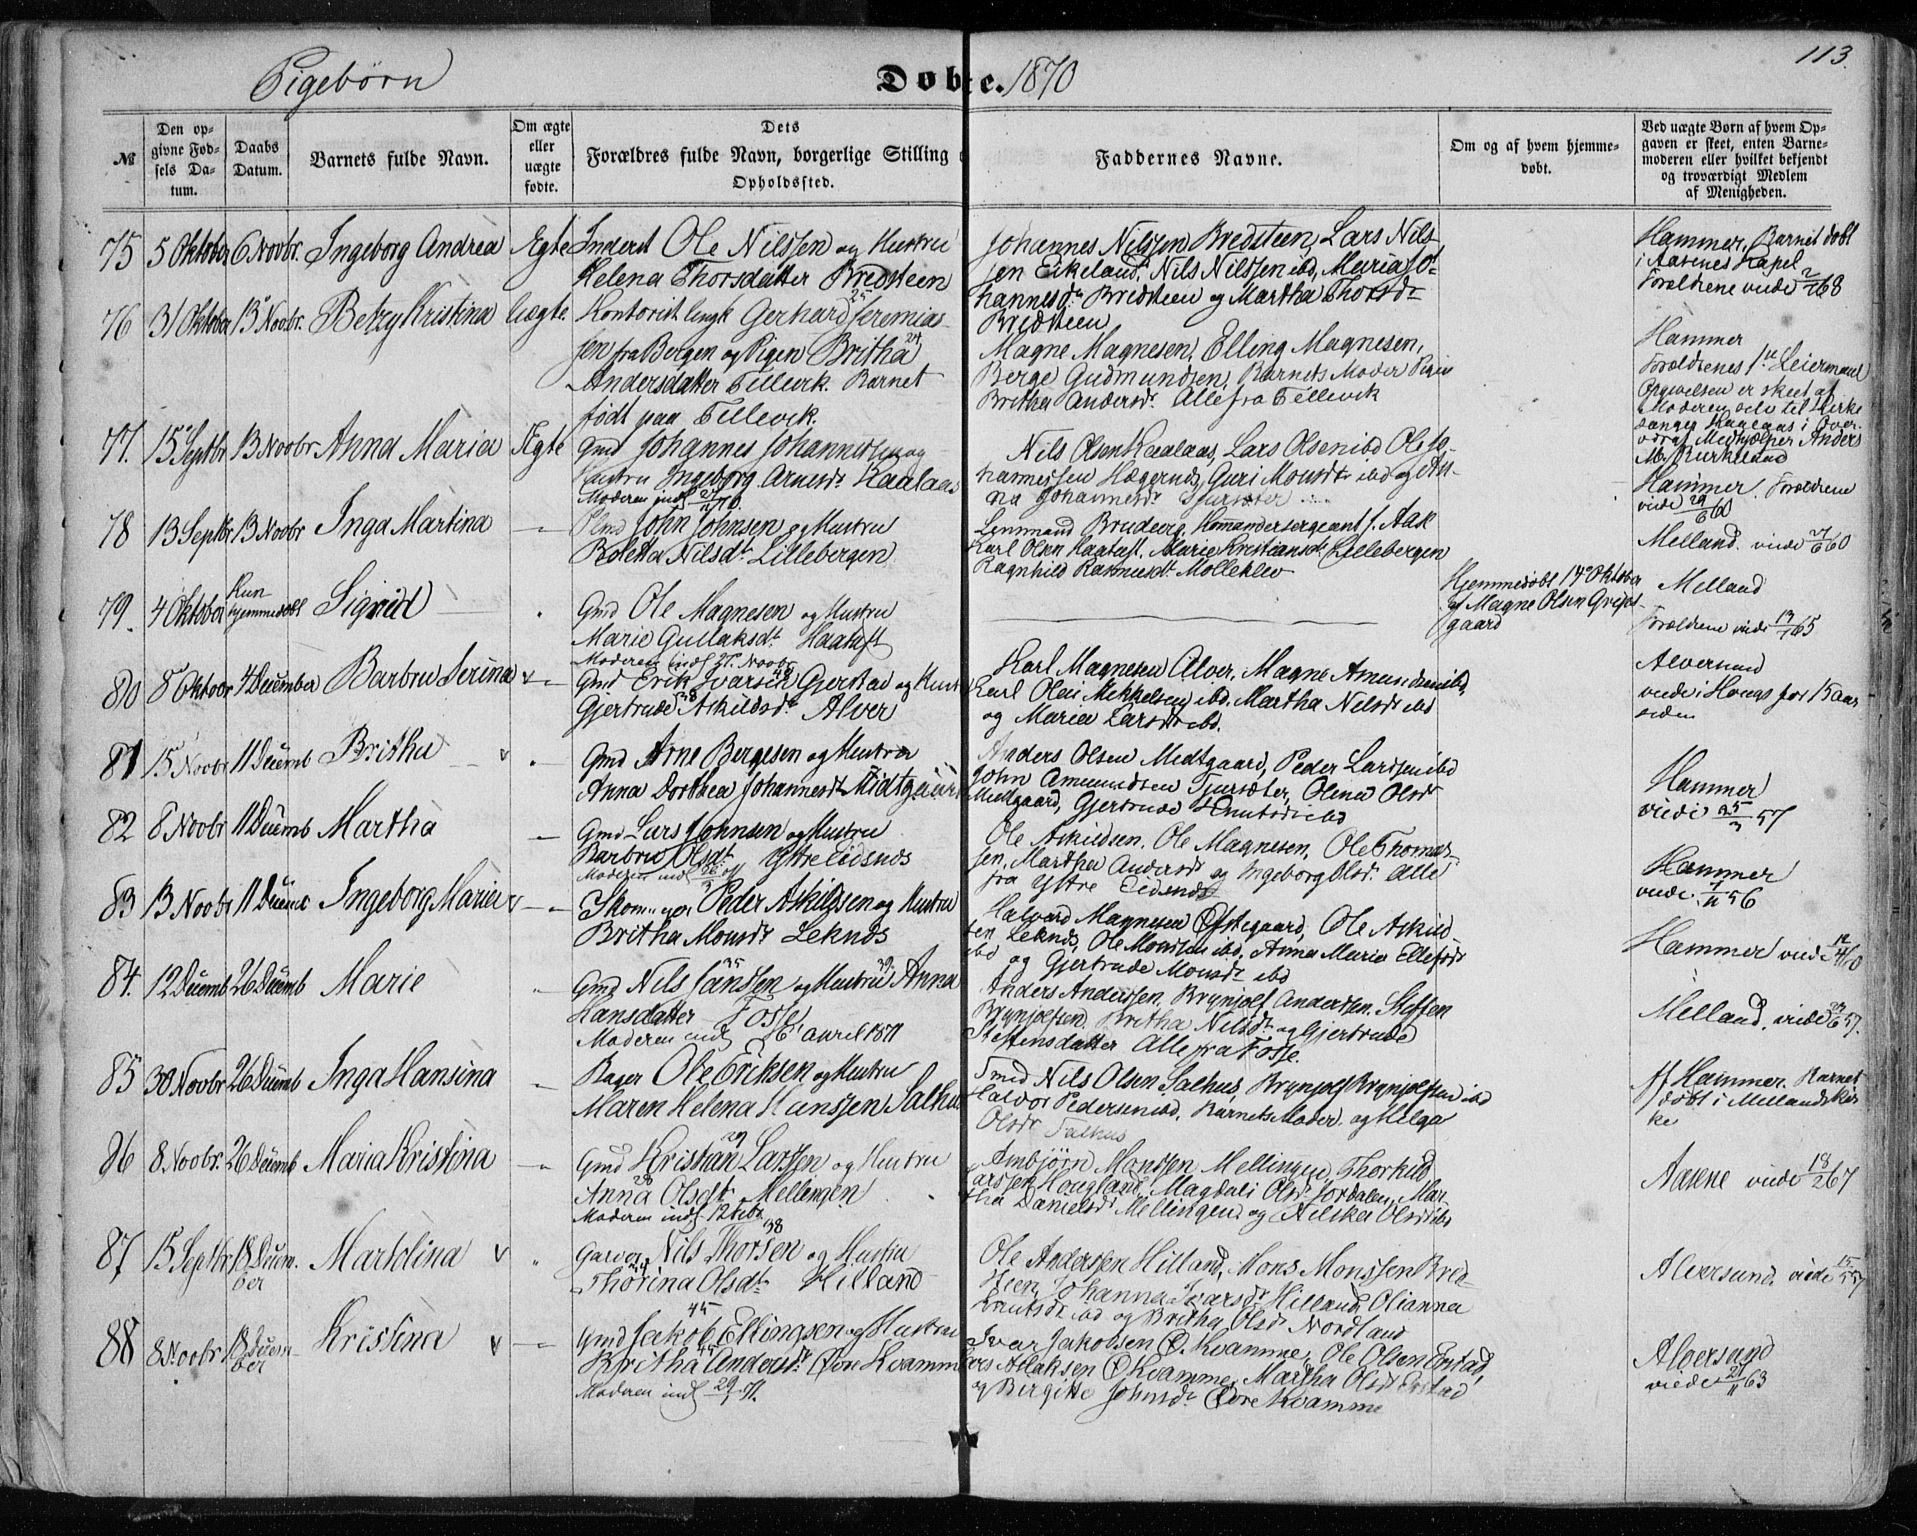 113.
Pigebørn
Døbte. 1870
№
Den op-
givne Fød-
sels Da-
tum.
Daabs
Datum.
Barnets fulde Navn.
Om ægte
eller
uægte
fødte.
Dets
Forældres fulde Navn, borgerlige Stilling
Opholdssted.
Faddernes Navne.
Om og af hvem hjemme-
døbt.
Ved uægte Børn af hvem Op-
gaven er skeet, enten Barne-
moderen eller hvilket bekjendt
og troværdigt Medlem
af Menigheden.
75 5 Oktober 6 Novbr. Ingeborg Andrea Egte Inderst Ole Nilssen og Hustru
Helena Thorsdatter Bredsteen
Johannes Nilssen Bredsteen, Lars Nils-
sen Eikeland, Nils Nilssen ibd, Maria Jo-
hannesdr Bredsteen og Martha Thorsdr
Bredsteen
Hammer. Barnet døbt
i Aasenes Kapel
Forældrene viede 2/7 68
76 31 Oktober 13 Novbr. Betzy Kristina Uægte. Kontorist Gerhard Jeremias-
25
sen fra Bergen og Pigen Britha
24
Andersdatter Tellevik. Barnet
født paa Tellevik.
Magne Magnesen, Elling Magnesen,
Berge Gudmundsen, Barnets Moder Pigen
Britha Andersdr. Alle fra Tellevik
Hammer
Forældrenes 1ste Leiermaal
Opgivelsen er skeet af
Moderen selv til Kirke
sanger Kaalaas i Over-
værelse af Medhjelper Anders
M. Birkeland
77. 15 Septbr 13 Novbr Anna Maria Ægte Gmd Johannes Johannessen og
Hustru Ingeborg Arnesdr Kaalaas
Moderen indl
Nils Olsen Kaalaas, Lars Olsen ibd Ole Jo-
hannessen Hægernes, Guri Monsdr ibd og An-
na Johannesdr Tjursæter
Hammer. Forældrene
viede 29/6 60
78 13 Septbr 13 Novbr Inga Martina — Plmd John Johnsen og Hustru
Boletta Nilsdr. Lillebergen
Lensmand Brudevig, Kommandersergeant J. Aak
Karl Olsen Haatuft, Marie Kristiansdr Lillebergen
Ragnhild Rasmusdr. Mølleklev
Melland. viede 21/6 60
79. 4 Oktober Kun
hjemmedøbt Sigrid — Gmd Ole Magnesen og Hustru
Marie Gullaksdr. Haatuft
Moderen indl 27. Novbr
Hjemmedøbt 14de Oktober
af Magne Olsen Grips-
gaard
Melland
Forældrene viede 65
80 8 Oktober 4 December Barbru Serina v — Gmd Erik Ivarsen Gjerstad og Hustru
48
Gjertrude Askildsdr. Alver
38
Karl Magnesen Alver, Magne Amundsen ibd,
Karl Olai Mikkelsen ibd. Martha Nilsdr ibd
og Maria Larsdr ibd.
Alversund
viede i Hougs for 15 aar
siden
81 15 Novbr 11 Decemb Britha — v Gmd Arne Bergesen og Hustru
Anna Dorthea Johannesdr Midtgaard
Anders Olsen Medtgaard, Peder Larssen ibd
John Amundsen Tjursæter, Olina Olsdr
Midtgaard, Gjertrude Knutsdr ibd
Hammer
viede 25/3 57
82 8 Novbr 11 Decemb Martha — Gmd Lars Johnsen og Hustru
Barbru Olsdr. Ytre Eidsnes
Moderen indl
Ole Askildsen, Ole Magnesen, Ole Thomas-
sen, Martha Andersdr og Ingeborg Olsdr. Alle
fra Ytre Eidsnes
Hammer
viede 56
83 13 Novbr 11 Decemb Ingeborg Marie v — Skomager Peder Askildsen og Hustru
Britha Monsdr Leknes
Halvard Magnesen Øfstegaard, Ole Askild
sen Leknes, Ole Monsen ibd, Anna Maria Ellefsdr
ibd og Gjertrude Monsdr ibd
Hammer viede 12/4 60
84. 12 Decemb 26 Decemb Marie Gmd Nils Hanssen og Hustru Anna
35 39
Hansdatter Fosse
Moderen indl 16 April 1871
Anders Anderssen, Brynjolf Anderssen, Steffen
Brynjolfsen, Britha Nilsdr og Gjertrude
Steffensdatter Alle fra Fosse.
Melland. viede 57.
85 30 Novbr 26 Decemb Inga Hansina — Bager Ole Eriksen og Hustru
Maren Helena Hanssen Salhus
Smed Nils Olsen Salhus, Brynjolf Brynjolfsen ibd
Halvor Pedersen ibd, Barnets Moder og Helga
Olsdr Salhus
Hammer. Barnet
døbt i Mellands Kir-
ke
86 8 Novbr. 26 Decemb Maria Kristina — Gmd Kristian Larssen og Hustru
29
Anna Olsdr. Mellingen
28
Moderen indl 12 Febr.
Ambjørn Monssen Mellingen, Thorkild
Larssen Hougland, Magdeli Olsdr Jordalen, Mar-
tha Danielsdr Mellingen og Nilska Olsdr ibd
Aasene viede 18/2 67
87 15 Septbr 18 Decem-
ber Martolina v Garver Nils Thorsen og Hustru
38
Thorina Olsdr. Hilland
Ole Anderssen Hilland, Mons Monssen Bred-
steen, Johanna Ivarsdr Hilland, Olianna
Knutsdr ibd og Britha Olsdr Nordland
Alversund. viede 15/5 57
88 8 Novbr 18 Decem-
ber Kristina v — Gmd Jakob Ellingsen og Hustru
45
Britha Andersdr. Øvre Kvamme
45
Moderen indl 29/1 71.
Ivar Jakobsen Ø. Kvamme, Ole Olsen Erstad,
Aslaksen Ø. Kvamme, Martha Olsdr Erstad
og Bergitte Johnsdr Øvre Kvamme
Alversund
viede 21/11 63